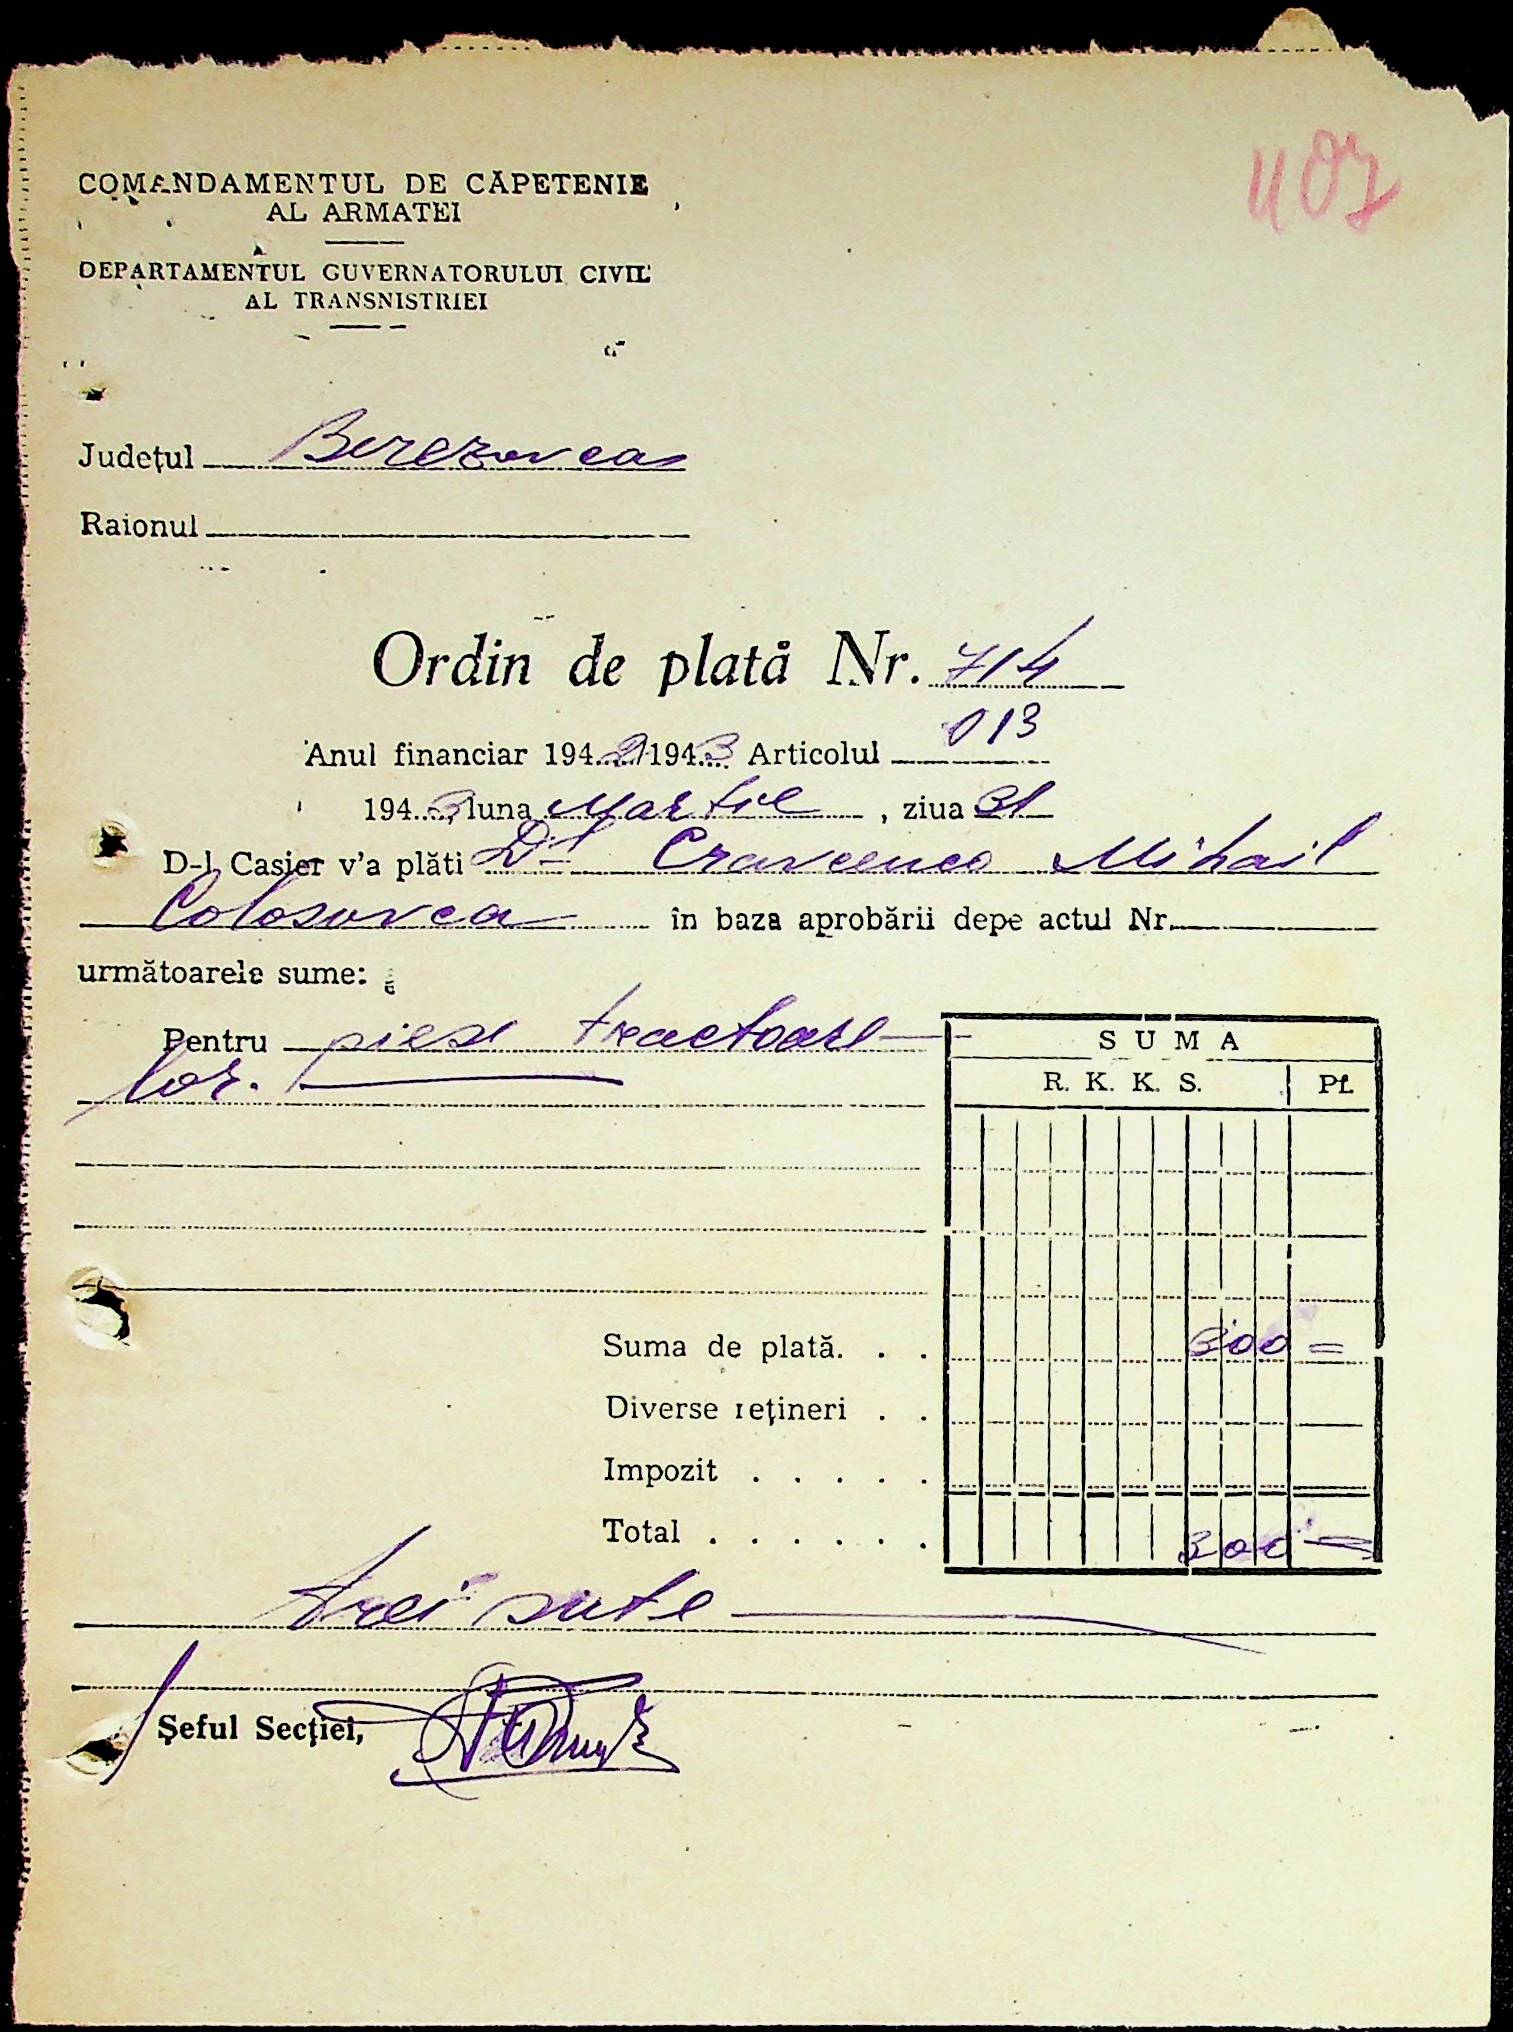 407
COMANDAMENTUL DE CĂPETENIE
AL ARMATEI
DEPARTAMENTUL GUVERNATORULUI CIVIL
AL TRANSNISTRIEI
Județul Berezovca
Raionul
Ordin de plată Nr. 714
Anul financiar 1942/1943 Articolul 013
1943, luna Martie, ziua 31
D-l Casier v'a plăti Dl Cravcenco Mihail
Colosovca în baza aprobării depe actul Nr.
următoarele sume:
Pentru piese tractoare
lor.
SUMA
R. K. K. S. Pf.
Suma de plată. . . 300 =
Diverse rețineri . .
Impozit . . . . .
Total . . . . . . 300 =
trei sute
Șeful Secției,